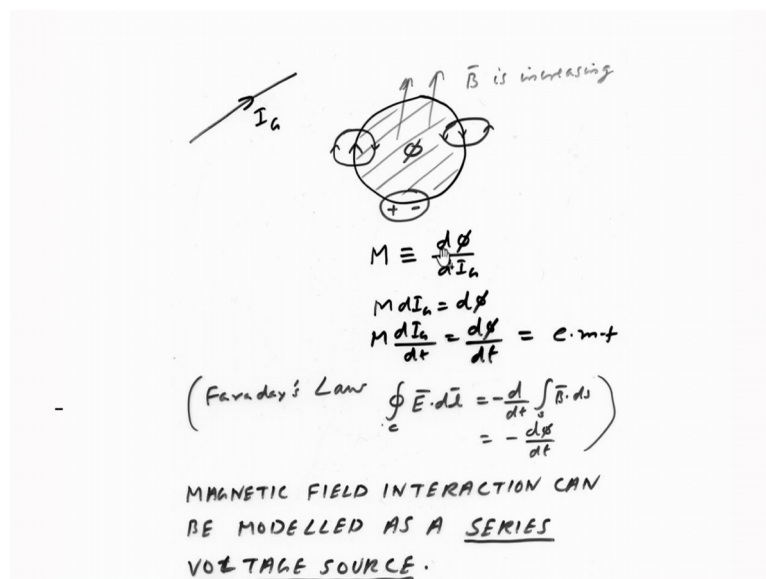 B̄ is increasing
I_a
φ
+ -
M ≡ dφ/dI_a
M dI_a = dφ
M dI_a/dt = dφ/dt = e.m.f
(Faraday's Law ∮_c Ē·dl̄ = -d/dt ∫_s B̄·ds
= -dφ/dt)
MAGNETIC FIELD INTERACTION CAN
BE MODELLED AS A SERIES
VOLTAGE SOURCE.